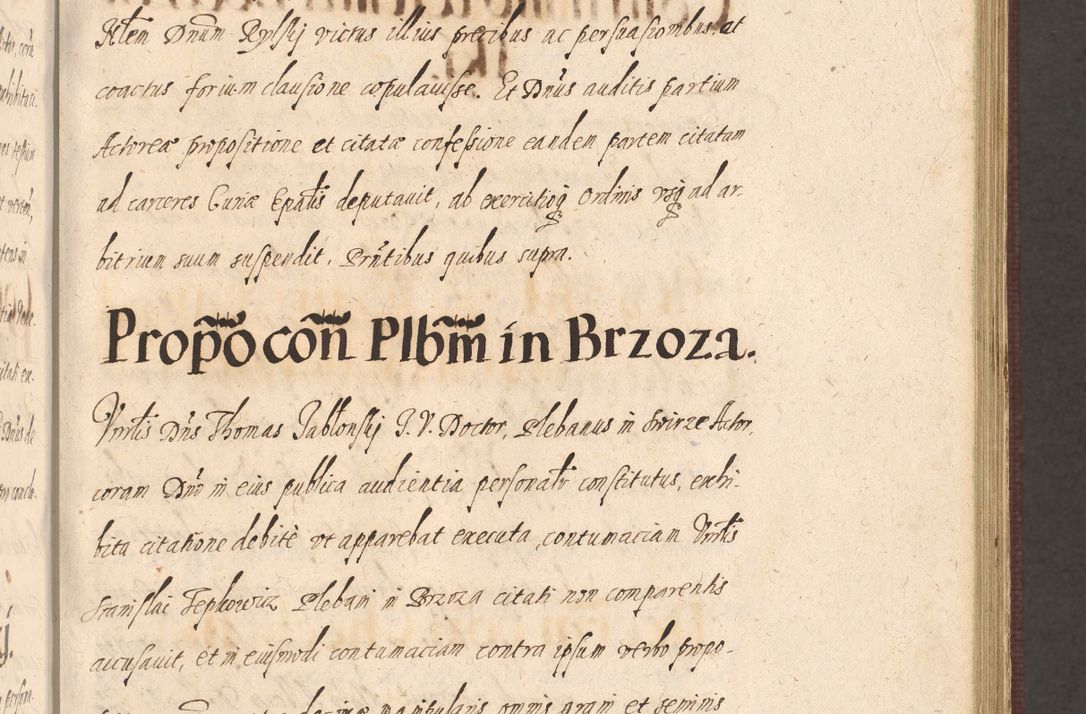 Nłem Dnum Rylskij victus illius precibus ac persuasionibus, at
coactus forium clausione copulavisse. Et Dnus auditis partium
Actoreæ propositione et citatæ confessione eandem partem citatam
ad carceres Curiæ Epalis deputavit, ab exercitioq Ordinis ad ar-
bitrium suum suspendit, Prntibus quibus supra.
Propo con Plbm in Brzoza.
Vnrlis Dns Thomas Jabłonskij J. V. Doctor, Plebanus in Swirze Actor,
coram Dno in eius publica audientia personalr constitutus, exhi-
bita citatione debitè vt apparebat executa, contumaciam Vnrlis
Stanislai Tepkowicz Plebani in Brzoza citati non comparentis
accusavit, et in eiusmodi contumaciam contra ipsum verbo propo-
decimæ manipularis omnis grani et seminis